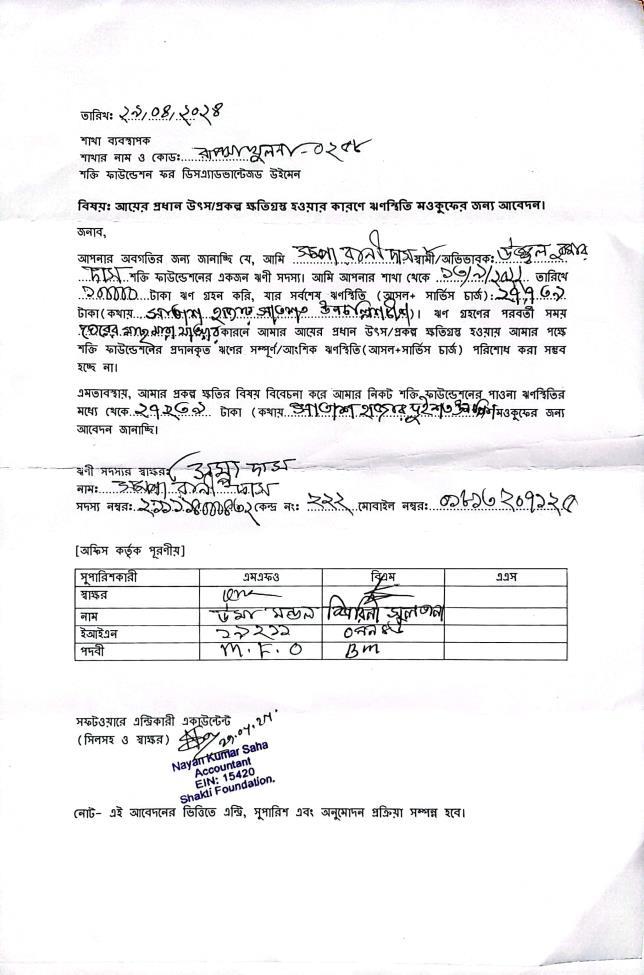 তারিখ: ২৯/০৪/২০২৪
শাখা ব্যবস্থাপক
শাখার নাম ও কোড: রূপসা খুলনা-০২৫৪
শক্তি ফাউন্ডেশন ফর ডিসএ্যাডভান্টেজড উইমেন
বিষয়: আয়ের প্রধান উৎস/প্রকল্প ক্ষতিগ্রস্ত হওয়ার কারণে ঋণস্থিতি মওকুফের জন্য আবেদন।
জনাব,
আপনার অবগতির জন্য জানাচ্ছি যে, আমি রানী দাস স্বামী/অভিভাবক: উজ্জ্বল কুমার
দাস শক্তি ফাউন্ডেশনের একজন ঋণী সদস্য। আমি আপনার শাখা থেকে তারিখে
টাকা ঋণ গ্রহন করি, যার সর্বশেষ ঋণস্থিতি (আসল+ সার্ভিস চার্জ) ২৭৭৩৯
টাকা (কথায় সাতাশ হাজার সাতশত উনচল্লিশ)। ঋণ গ্রহণের পরবর্তী সময়
কারনে আমার আয়ের প্রধান উৎস/প্রকল্প ক্ষতিগ্রস্ত হওয়ায় আমার পক্ষে
শক্তি ফাউন্ডেশনের প্রদানকৃত ঋণের সম্পূর্ণ/আংশিক ঋণস্থিতি(আসল+সার্ভিস চার্জ) পরিশোধ করা সম্ভব
হচ্ছে না।
এমতাবস্থায়, আমার প্রকল্প ক্ষতির বিষয় বিবেচনা করে আমার নিকট শক্তি ফাউন্ডেশনের পাওনা ঋণস্থিতির
মধ্যে থেকে ২৭২৩৯ টাকা (কথায় সাতাশ হাজার দুইশত উনচল্লিশ মওকুফের জন্য
আবেদন জানাচ্ছি।
ঋণী সদস্যর স্বাক্ষর: দাস
নাম: রানী দাস
সদস্য নম্বর: কেন্দ্র নং: ২২২ মোবাইল নম্বর:
[অফিস কর্তৃক পূরণীয়]
সুপারিশকারী এমএফও বিএম এএস
স্বাক্ষর
নাম উমা মন্ডল সুলতানা
ইআইএন ১৯২১১
পদবী M.F.O BM
সফটওয়ারে এন্ট্রিকারী একাউন্টেন্ট
(সিলসহ ও স্বাক্ষর) 29.04.24.
Nayan Kumar Saha
Accountant
EIN: 15420
Shakti Foundation.
নোট- এই আবেদনের ভিত্তিতে এন্ট্রি, সুপারিশ এবং অনুমোদন প্রক্রিয়া সম্পন্ন হবে।